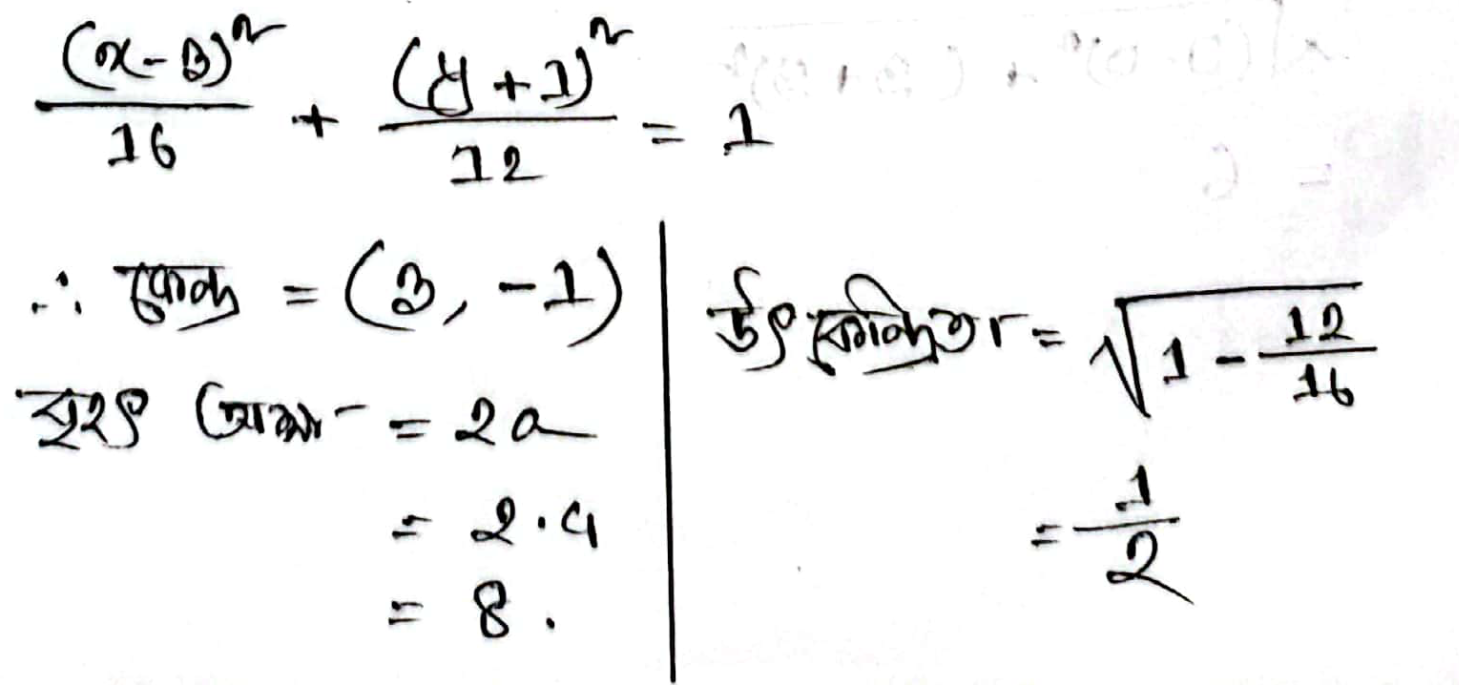 (x-3)²/16 + (y+1)²/12 = 1
∴ কেন্দ্র = (3, -1)
বৃহৎ অক্ষ = 2a
= 2.4
= 8.
উৎকেন্দ্রিতা = √(1 - 12/16)
= 1/2